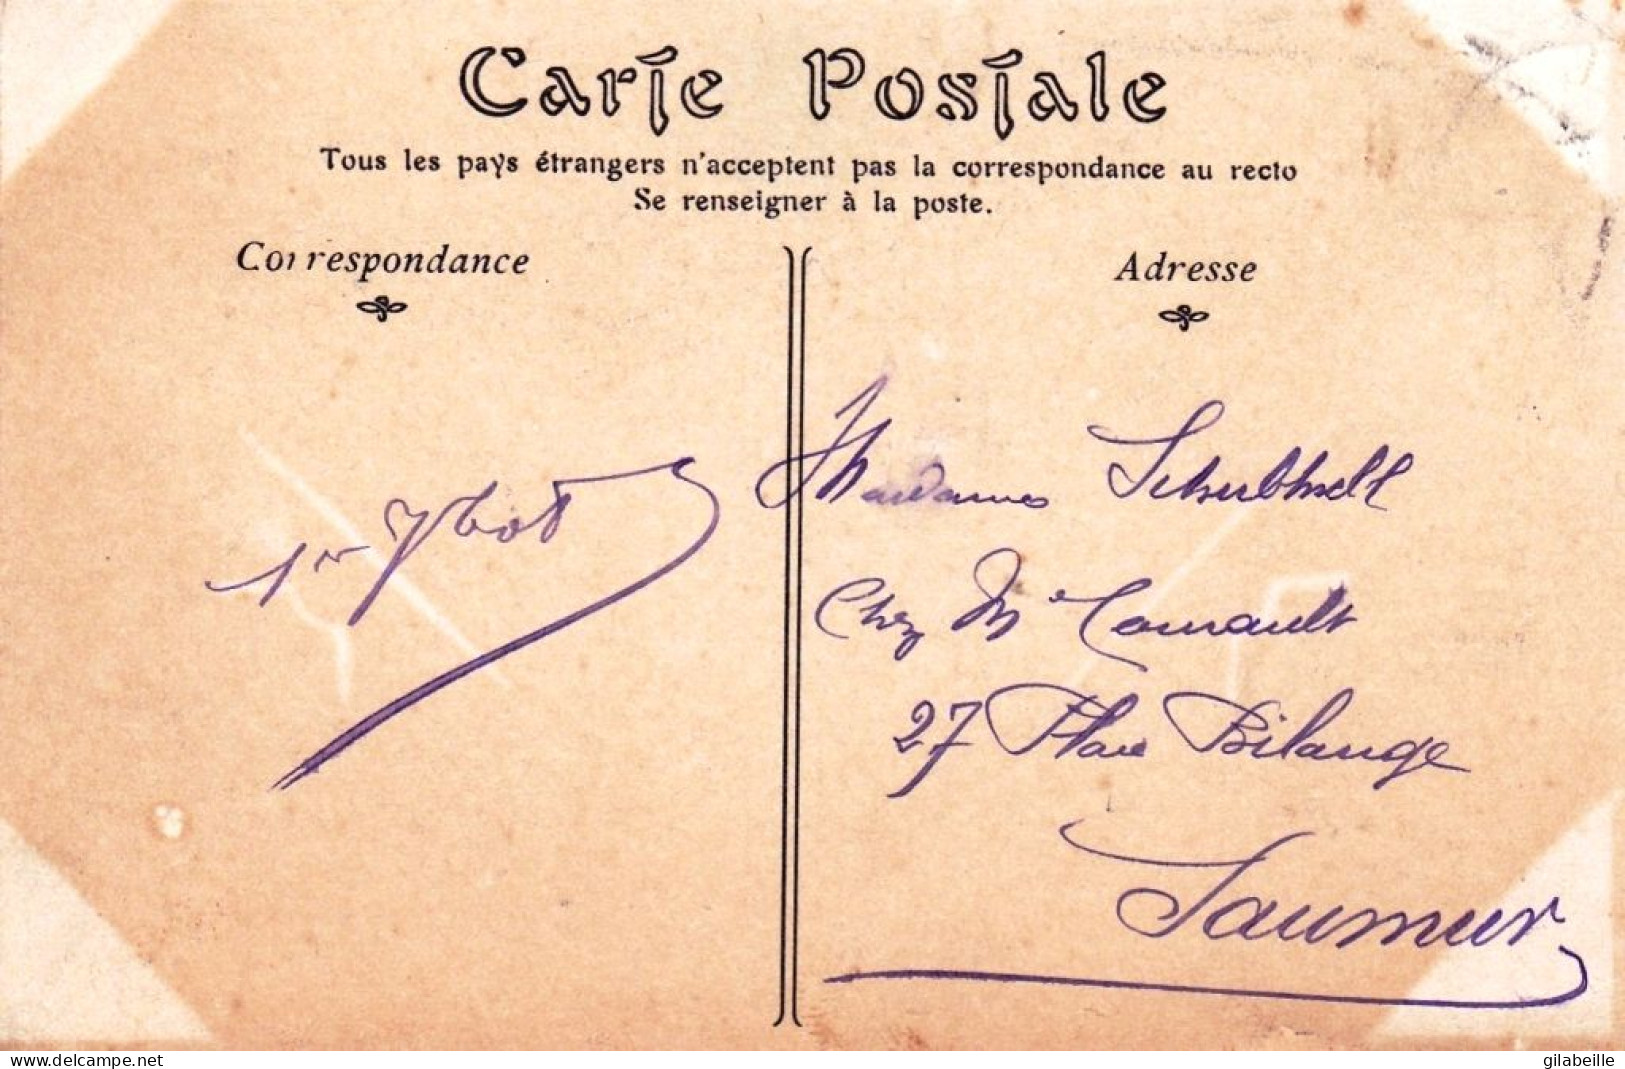 Carte Postale
Tous les pays étrangers n'acceptent pas la correspondance au recto
Se renseigner à la poste.
Correspondance
Adresse
Madame
Chez Me
27 Place Bilange
Saumur
www.delcampe.net
gilabeille